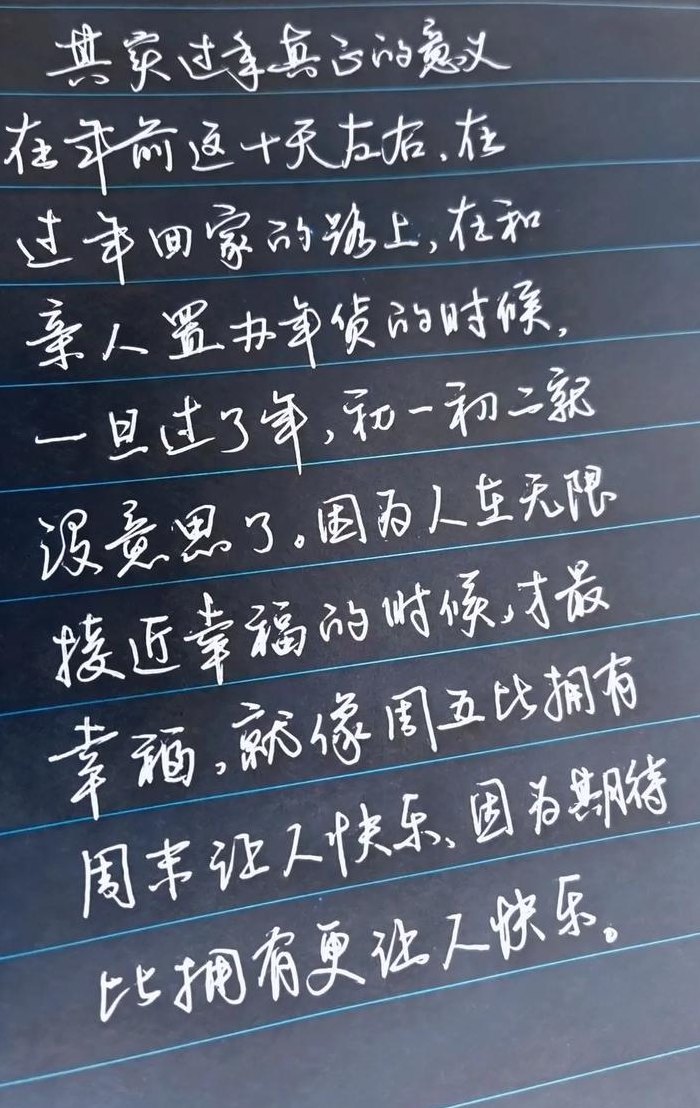 其实过年真正的意义
在年前这十天左右、在
过年回家的路上，在和
亲人置办年货的时候，
一旦过了年，初一初二就
没意思了。因为人在无限
接近幸福的时候，才最
幸福，就像周五比拥有
周末让人快乐、因为期待
比拥有更让人快乐。